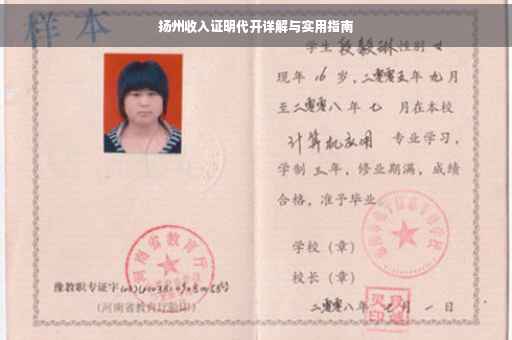 扬州收入证明代开详解与实用指南
样本
学生段毅琳性别女
现年16岁，二零零五年九月
至二零零八年七月在本校
计算机应用专业学习，
学制三年，修业期满，成绩
合格，准予毕业。
学校（章）
校长（章）
二零零八年七月一日
河南省教育厅
豫教职专证字
(河南省教育厅验印)